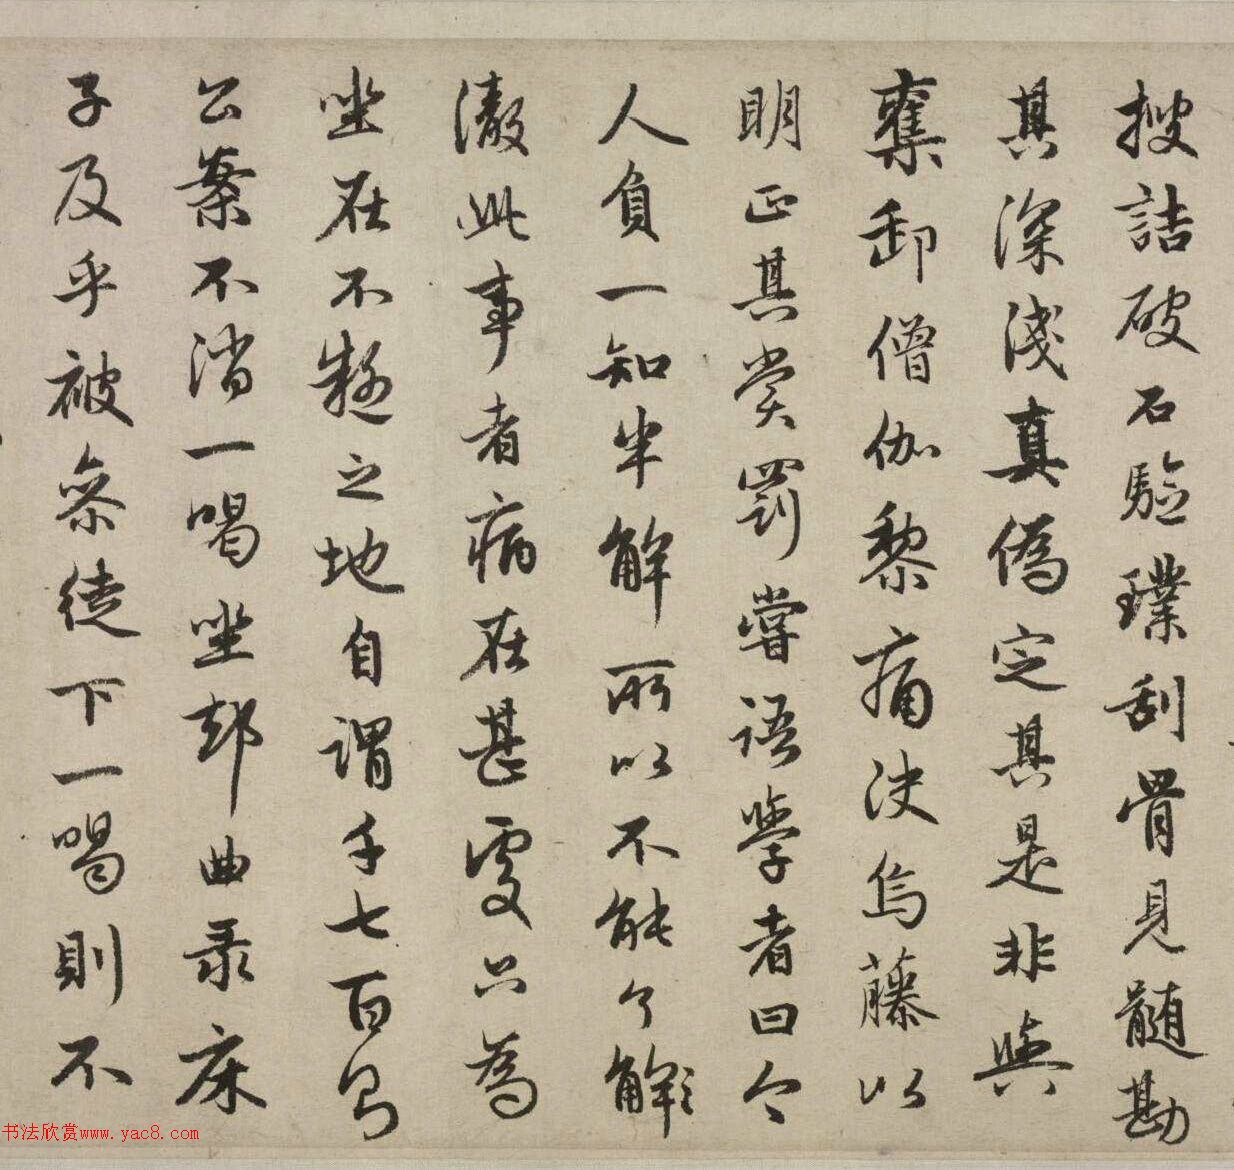 搜詰破石驗璞刮骨見髓勘
其深淺真偽定其是非與
奪卸僧伽黎痛決烏藤以
明正其賞罰嘗語學者曰今
人負一知半解所以不能了解
澈此事者病在甚處只為
坐在不疑之地自謂千七百則
公案不消一喝坐却曲彔床
子及乎被參徒下一喝則不
书法欣赏www.yac8.com